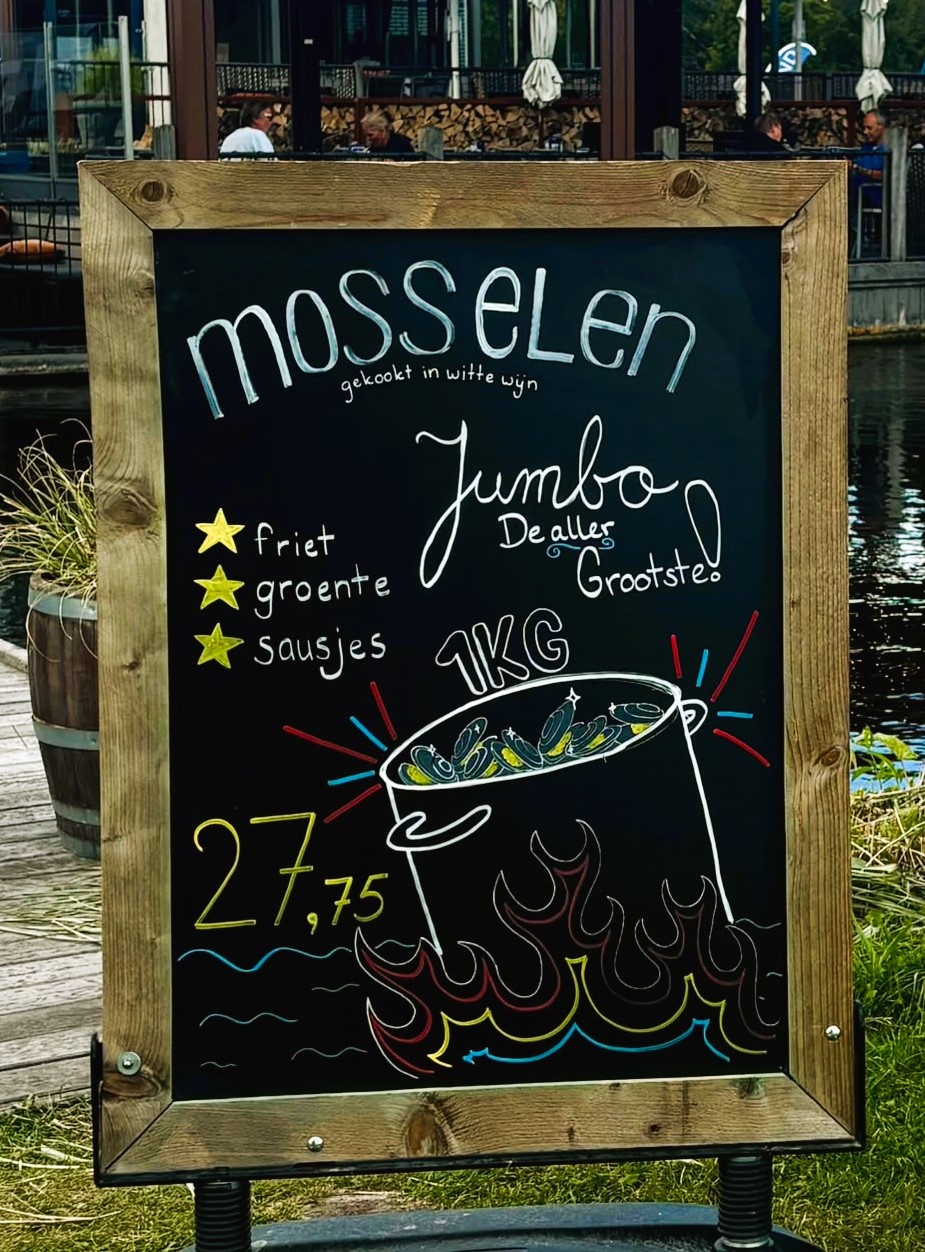 mosselen
gekookt in witte wijn
Jumbo!
De aller
Grootste!
friet
groente
sausjes
1KG
27,75